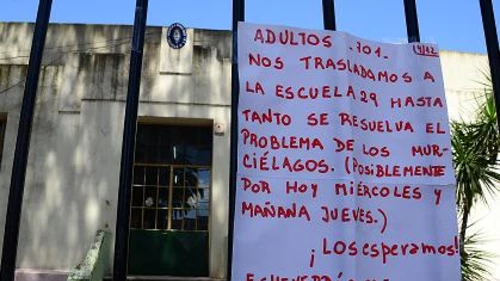 ADULTOS. 701.
4/12
NOS TRASLADAMOS A
LA ESCUELA 29 HASTA
TANTO SE RESUELVA EL
PROBLEMA DE LOS MUR-
CIÉLAGOS. (POSIBLEMENTE
POR HOY MIÉRCOLES Y
MAÑANA JUEVES.)
¡LOS ESPERAMOS!